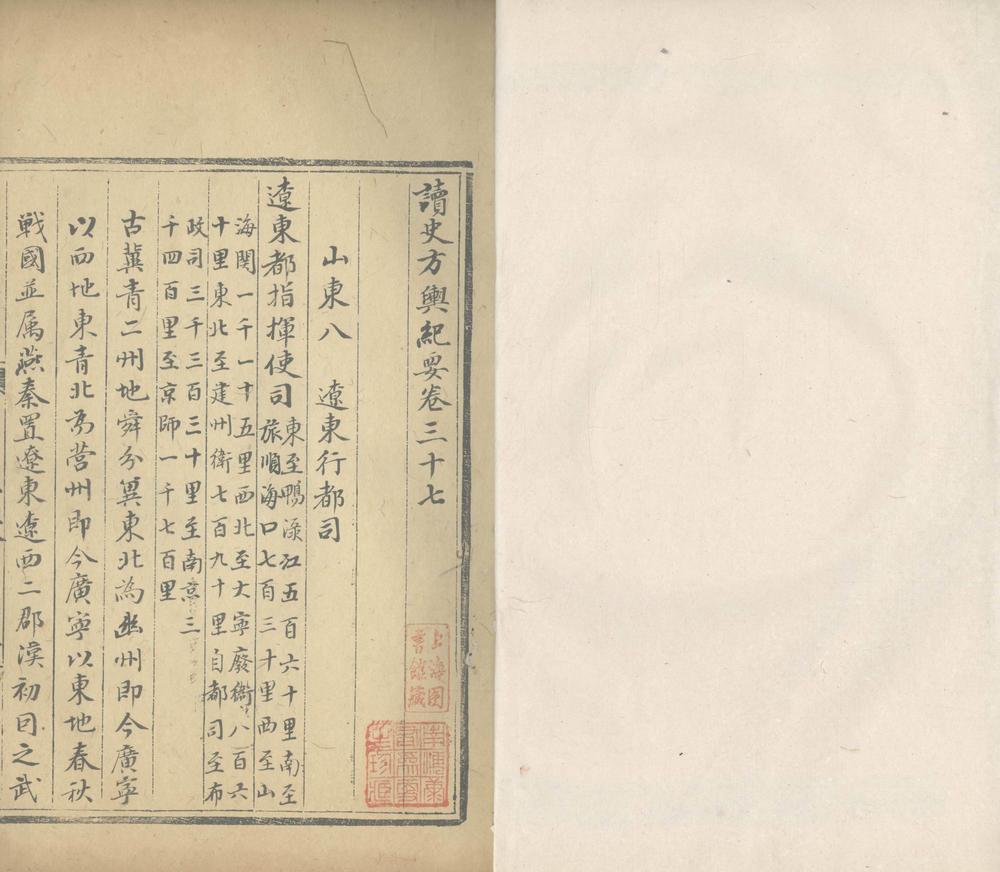 讀史方輿紀要卷三十七
山東八　遼東行都司
遼東都指揮使司東至鴨淥江五百六十里南至
旅順海口七百三十里西至山
海関一千一十五里西北至大寧廢衛八百六
十里東北至建州衛七百九十里自都司至布
政司三千三百三十里至南京三
千四百里至京師一千七百里
古冀青二州地舜分冀東北為幽州即今廣寧
以西地東青北為營州即今廣寧以東地春秋
戦國並属燕秦置遼東遼西二郡漢初因之武
上海圖
書館藏